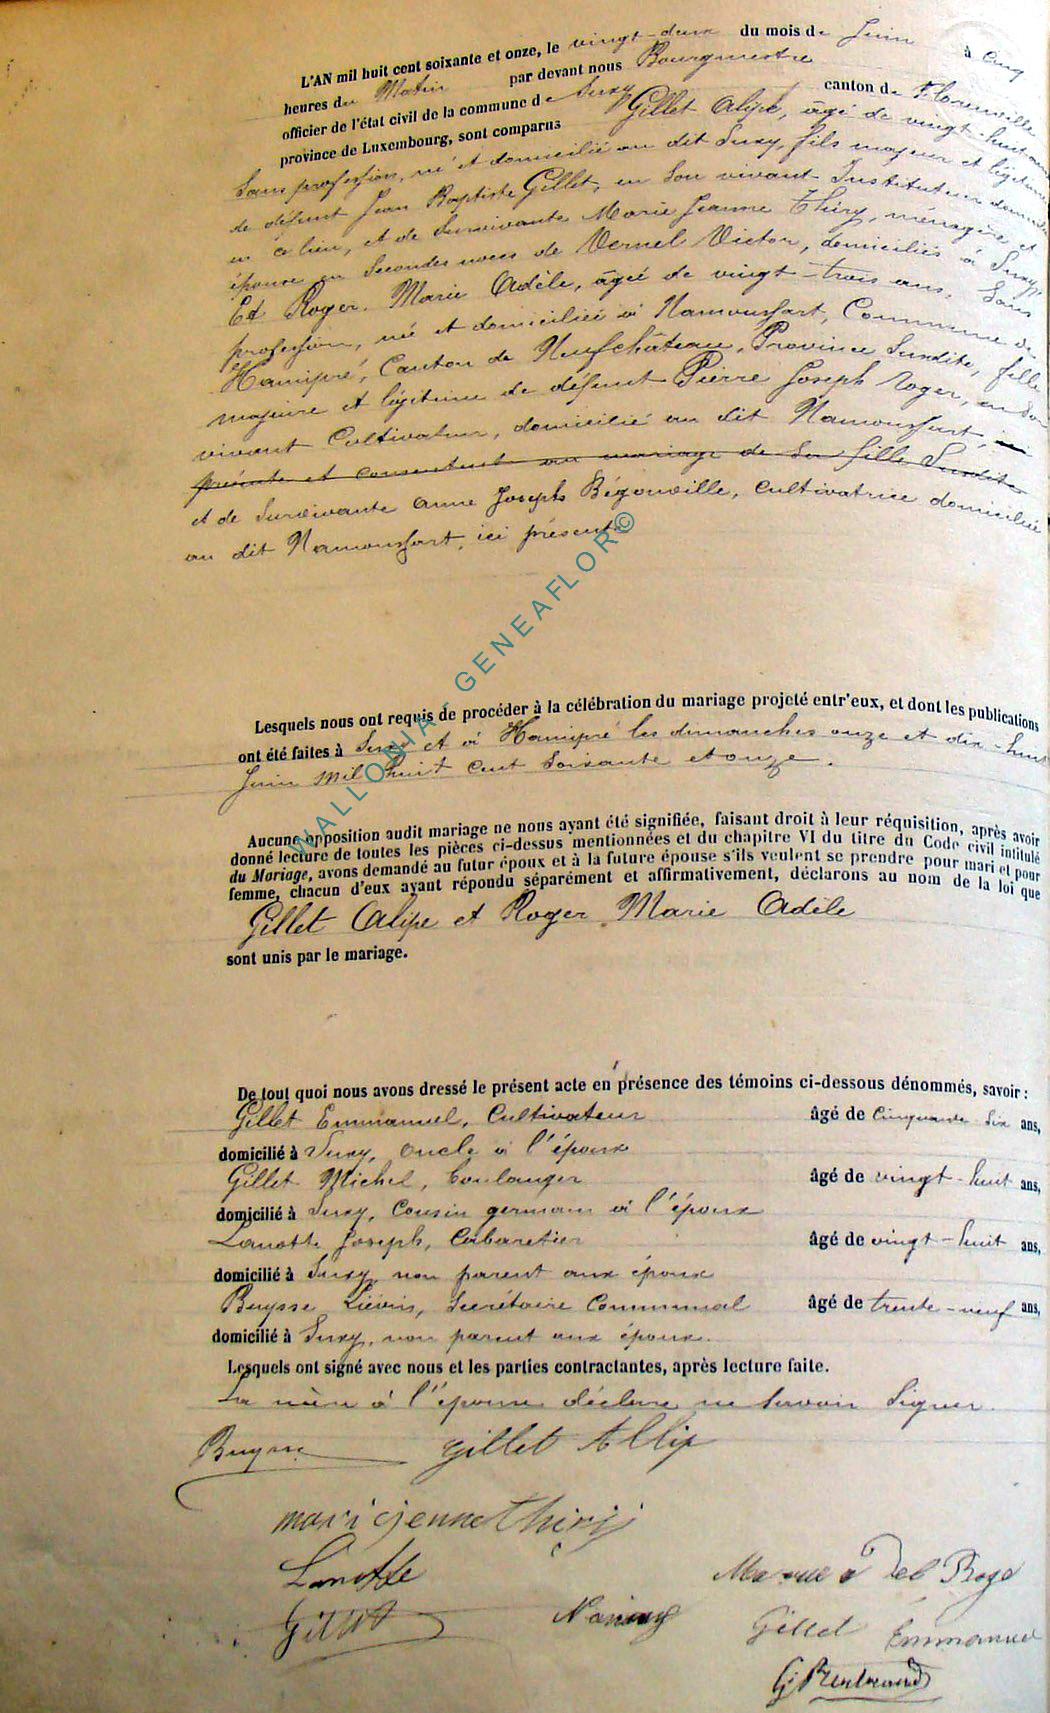 L'AN mil huit cent soixante et onze, le vingt-deux du mois de Juin à cinq
heures du Matin par devant nous Bourgmestre
officier de l'état civil de la commune de Suxy canton de Florenville
province de Luxembourg, sont comparus Gillet Alipe, âgé de vingt-huit ans
Sans profession, né et domicilié au dit Suxy, fils majeur et légitime
de défunt Jean Baptiste Gillet, en son vivant Instituteur
en ce lieu, et de Survivante Marie Jeanne Thiry, ménagère et
épouse en Secondes noces de Vernel Victor, domiciliés à Suxy,
Et Roger Marie Adèle, âgée de vingt-trois ans, Sans
profession, née et domiciliée à Namoussart, Commune de
Hamipré, Canton de Neufchâteau, Province Susdite, fille
majeure et légitime de défunt Pierre Joseph Roger, en son
vivant Cultivateur, domicilié au dit Namoussart, ici
présente et consentent au mariage de Sa fille Susdite
et de Survivante Anne Joseph Bégouville, Cultivatrice domiciliée
au dit Namoussart, ici présente
WALLONIA - GENEAFLOR©
Lesquels nous ont requis de procéder à la célébration du mariage projeté entr'eux, et dont les publications
ont été faites à Suxy et à Hamipré les dimanches onze et dix-huit
Juin mil huit cent Soixante et onze.
Aucune opposition audit mariage ne nous ayant été signifiée, faisant droit à leur réquisition, après avoir
donné lecture de toutes les pièces ci-dessus mentionnées et du chapitre VI du titre du Code civil intitulé
du Mariage, avons demandé au futur époux et à la future épouse s'ils veulent se prendre pour mari et pour
femme, chacun d'eux ayant répondu séparément et affirmativement, déclarons au nom de la loi que
Gillet Alipe et Roger Marie Adèle
sont unis par le mariage.
De tout quoi nous avons dressé le présent acte en présence des témoins ci-dessous dénommés, savoir :
Gillet Emmanuel, Cultivateur âgé de Cinquante Six ans,
domicilié à Suxy, oncle à l'époux
Gillet Michel, boulanger âgé de vingt-huit ans,
domicilié à Suxy, Cousin germain à l'époux
Lanotte Joseph, Cabaretier âgé de vingt-huit ans,
domicilié à Suxy, non parent aux époux
Buysse Liévin, Secrétaire Communal âgé de trente-neuf ans,
domicilié à Suxy, non parent aux époux.
Lesquels ont signé avec nous et les parties contractantes, après lecture faite.
La mère à l'épouse déclare ne Savoir Signer.
Buysse gillet Allip
marie jenne thirij
Lanotte
Gillet Gillet Emmanuel